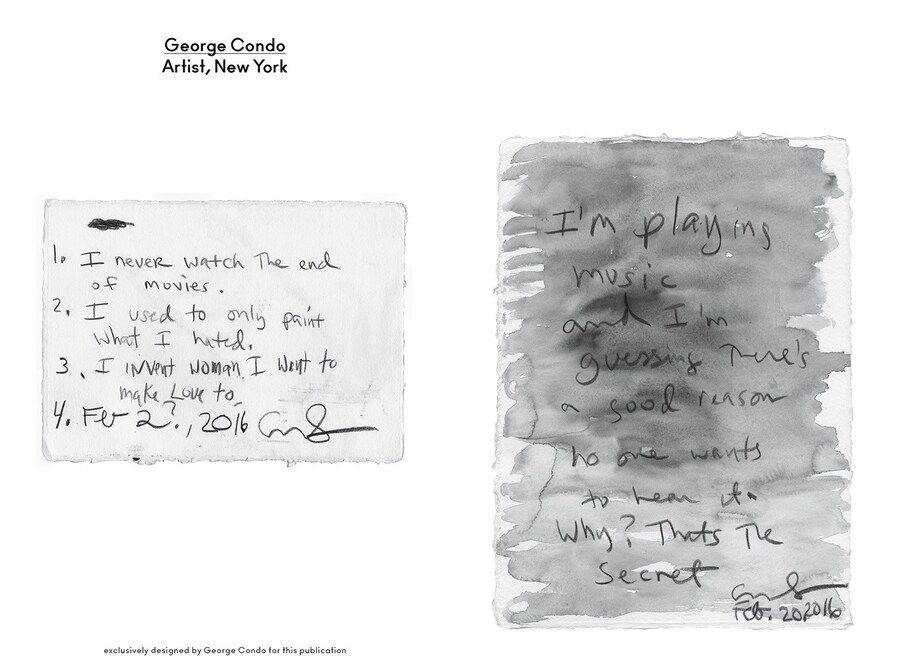 George Condo
Artist, New York
1. I never watch The end
of movies.
2. I used to only paint
what I hated.
3. I invent woman I want to
make Love to
4. Feb 2?, 2016
I'm playing
music
and I'm
guessing There's
a good reason
no one wants
to hear it.
Why? Thats The
Secret
Feb. 20, 2016
exclusively designed by George Condo for this publication